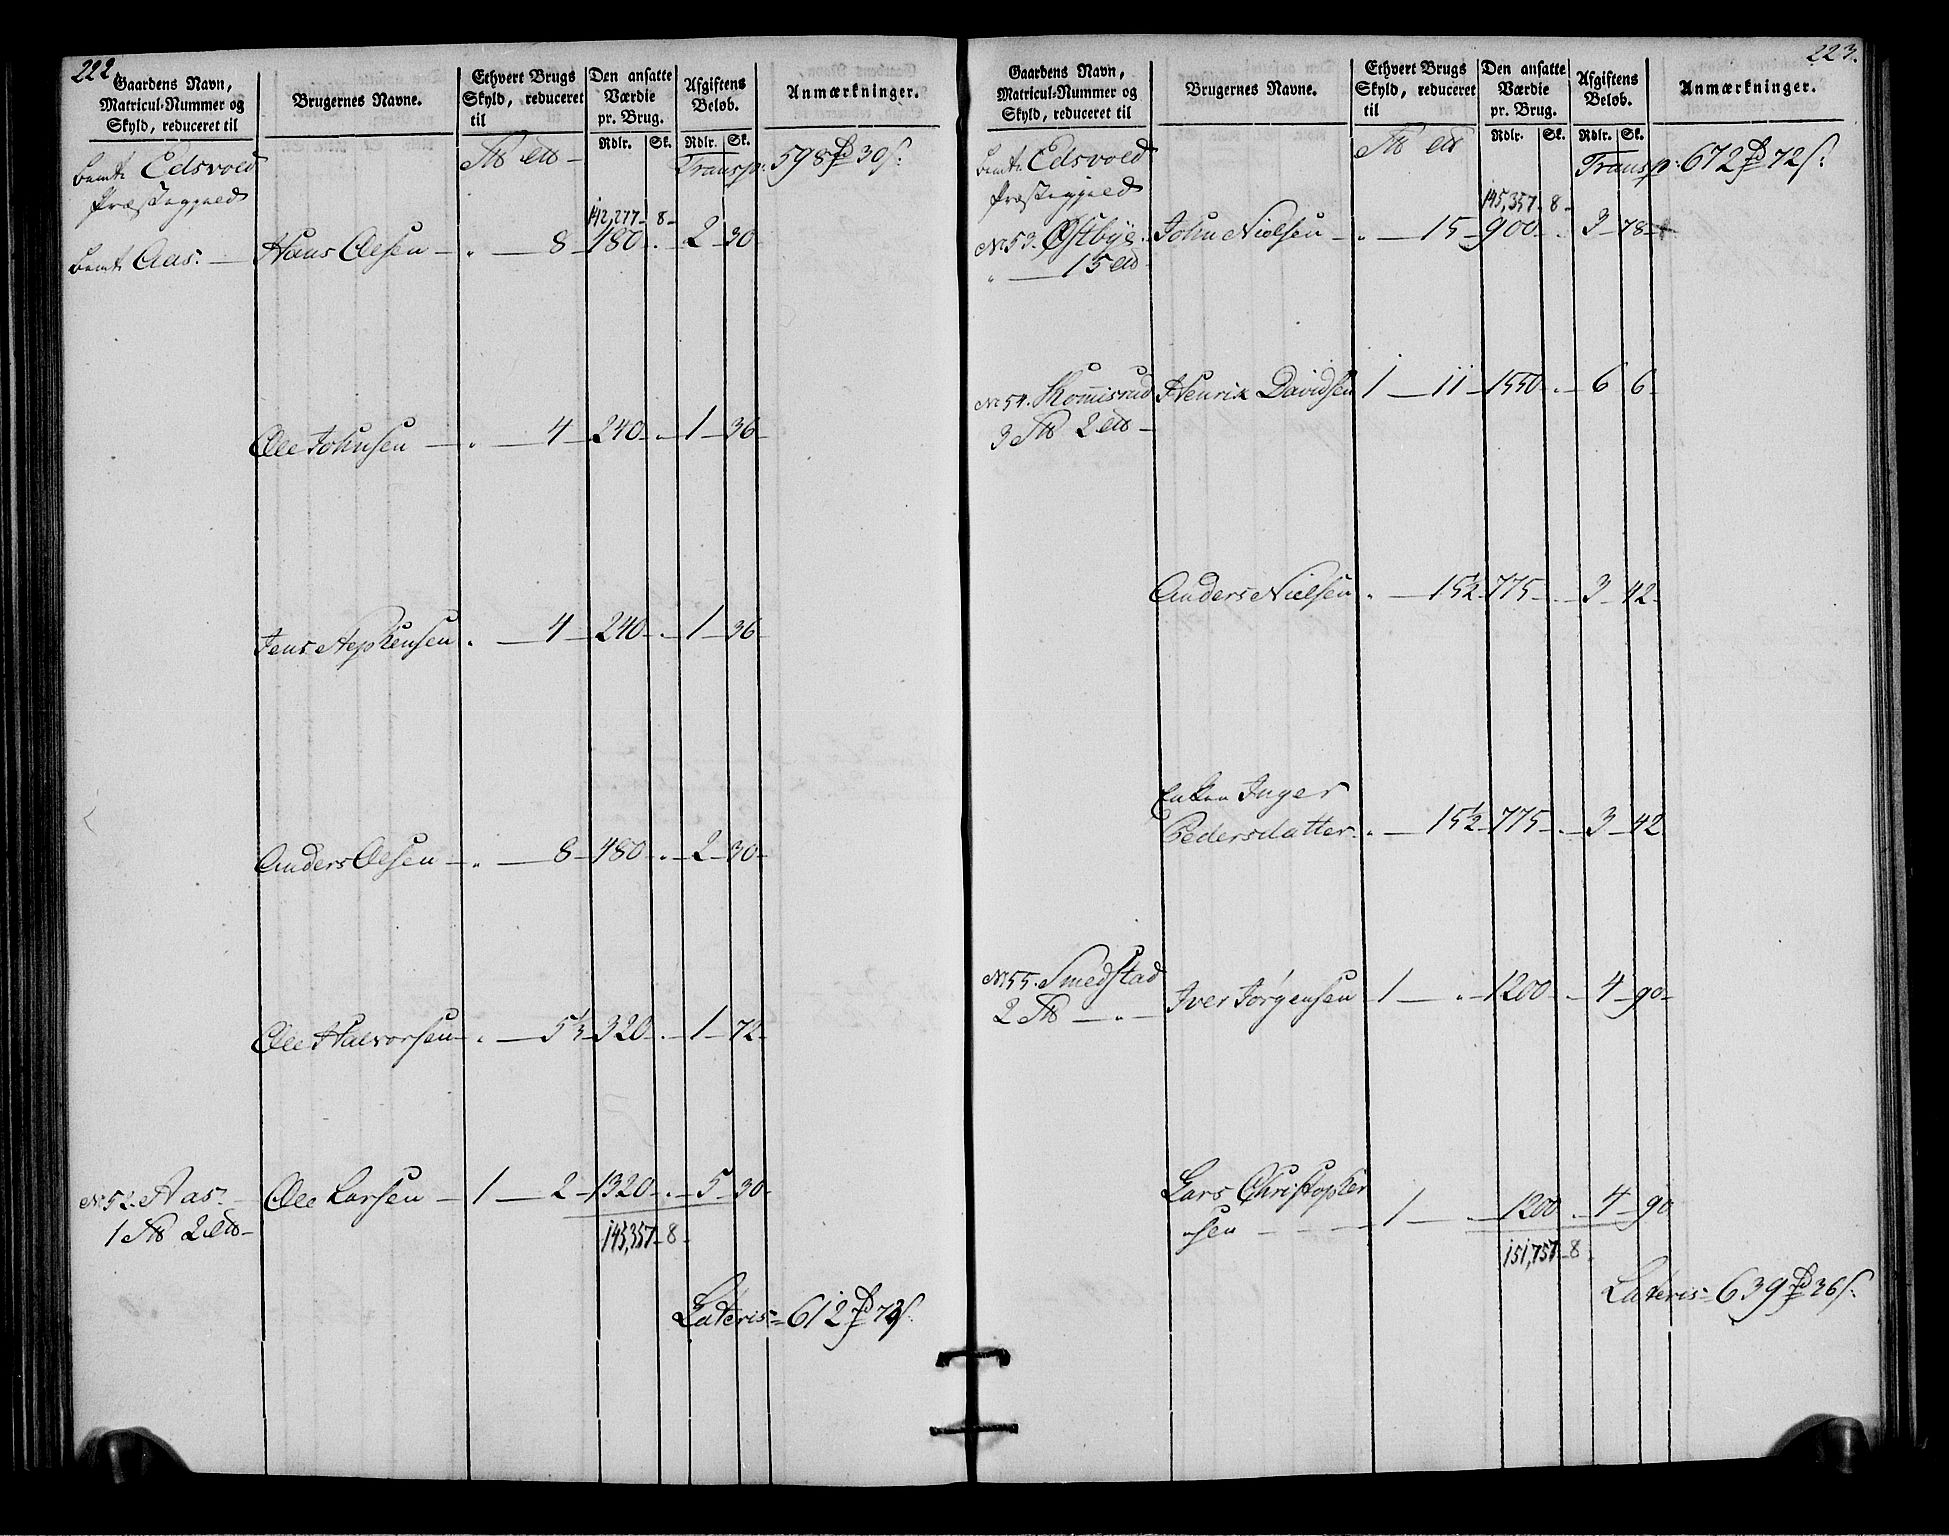 222.
Gaardens Navn, Matricul-Nummer og Skyld, reduceret til
Brugernes Navne.
Ethvert Brugs Skyld, reduceret til
Den ansatte Værdie pr. Brug.
Afgiftens Beløb.
Anmærkninger.
Rdlr. Sk. Rdlr. Sk.
bemte Edsvold Transp: 598 rd 30 s:
Præstegjeld
142,277 - 8 -
bemte Aas. Hans Olsen - " - 8 - 480 - " - 2 - 30 -
Ole Johnsen - " - 4 - 240 - " - 1 - 36 -
Jens Stephensen " - 4 - 240 - " - 1 - 36 -
Anders Olsen - " - 8 - 480 - " - 2 - 30 -
Ole Halvorsen - " - 5 1/3 - 320 - " - 1 - 72 -
No 52. Aas. Ole Larsen - 1 - 2 - 1320 - " - 5 - 30 -
145,357 - 8 -
Lateris = 612 rd 72 s.
223.
Gaardens Navn, Matricul-Nummer og Skyld, reduceret til
Brugernes Navne.
Ethvert Brugs Skyld, reduceret til
Den ansatte Værdie pr. Brug.
Afgiftens Beløb.
Anmærkninger.
Rdlr. Sk. Rdlr. Sk.
bemte Edsvold Transp: 672 rd 72 s:
Præstegjeld
145,357 - 8 -
No 53. Østbye. John Nielsen - " - 15 - 900 - " - 3 - 78 -
No 54. Henrik Davidsen 1 - 11 - 1550 - " - 6 - 6 -
Anders Nielsen " - 15 1/2 - 775 - " - 3 - 42 -
Enken Inger
Pedersdatter - " - 15 1/2 - 775 - " - 3 - 42
No 55. Smedstad Iver Jørgensen - 1 - " - 1200 - " - 4 - 90 -
Lars Christopher
-sen - 1 - " - 1200 " - 4 - 90
151,757 - 8 -
Lateris = 639 rd 36 s.